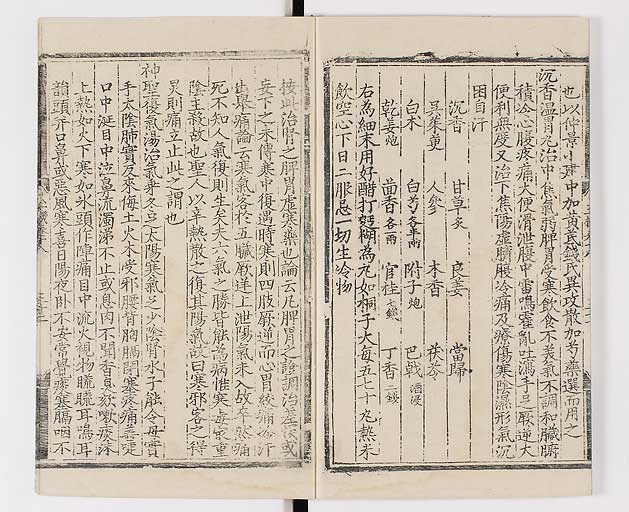 也以仲景小建中加黃芪錢氏異攻散加芍藥選而用之
沉香溫胃丸治中焦氣弱脾胃受寒飲食不美氣不調和臟腑
積冷心腹疼痛大便滑泄腹中雷鳴霍亂吐瀉手足厥逆大
便利無度又治下焦陽虛臍腹冷痛及療傷寒陰濕形氣沉
困自汗
沉香 甘草炙 良姜 當歸
吳茱萸 人參 木香 茯苓
白朮 白芍各半兩 附子炮 巴戟酒浸
乾姜炮 茴香各一兩 官桂七錢 丁香三錢
右為細末用好醋打麪糊為丸如梧子大每五七十丸熱米
飲空心下日二服忌一切生冷物
按此治腎之脾胃虛寒藥也論云凡脾胃之證調治差誤或
妄下之末傳寒中復遇時寒則四肢厥逆而心胃絞痛冷汗
出舉痛論云寒氣客於五臟厥逆上泄陽氣未入故卒然痛
死不知人氣復則生矣夫六氣之勝皆能為病惟寒毒最重
陰主殺故也聖人以辛熱散之復其陽氣故曰寒邪客之得
炅則痛立止此之謂也
神聖復氣湯治氣乘冬足太陽寒氣足少陰腎水子能令母實
手太陰肺實反來侮土火木受邪腰背胸膈閉塞疼痛善嚏
口中涎目中泣鼻流濁涕不止或息肉不聞香臭欬嗽痰沫
上熱如火下寒如冰頭作陣痛目中流火視物䀮䀮耳鳴耳
聾頭并口鼻或惡風寒喜日陽夜臥不安常覺痰塞膈咽不